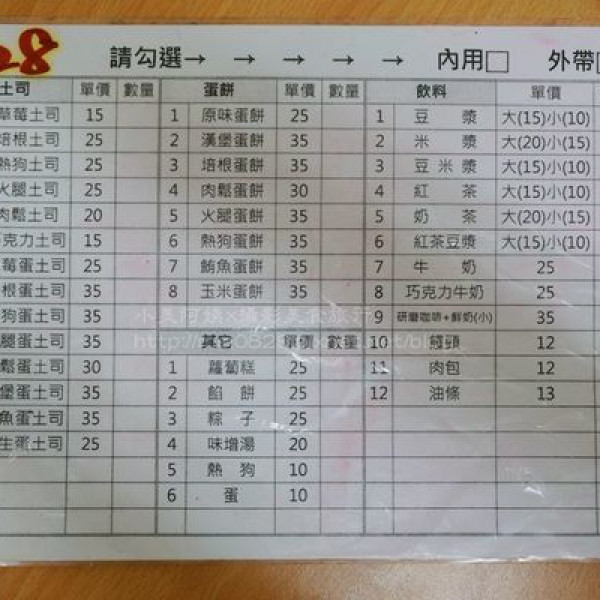 28 請勾選→ → → → → 內用□ 外帶□
土司 單價 數量 蛋餅 單價 數量 飲料 單價
草莓土司 15 1 原味蛋餅 25 1 豆 漿 大(15)小(10)
培根土司 25 2 漢堡蛋餅 35 2 米 漿 大(20)小(15)
熱狗土司 25 3 培根蛋餅 35 3 豆米漿 大(15)小(10)
火腿土司 25 4 肉鬆蛋餅 30 4 紅 茶 大(15)小(10)
肉鬆土司 20 5 火腿蛋餅 35 5 奶 茶 大(20)小(15)
巧克力土司 15 6 熱狗蛋餅 35 6 紅茶豆漿 大(15)小(10)
莓蛋土司 25 7 鮪魚蛋餅 35 7 牛 奶 25
根蛋土司 35 8 玉米蛋餅 35 8 巧克力牛奶 25
狗蛋土司 35 9 研磨咖啡+鮮奶(小) 35
腿蛋土司 35 其它 單價 數量 10 饅頭 12
鬆蛋土司 30 1 蘿蔔糕 25 11 肉包 12
堡蛋土司 35 2 餡 餅 25 12 油條 13
魚蛋土司 35 3 粽 子 25
生蛋土司 25 4 味增湯 20
5 熱 狗 10
6 蛋 10